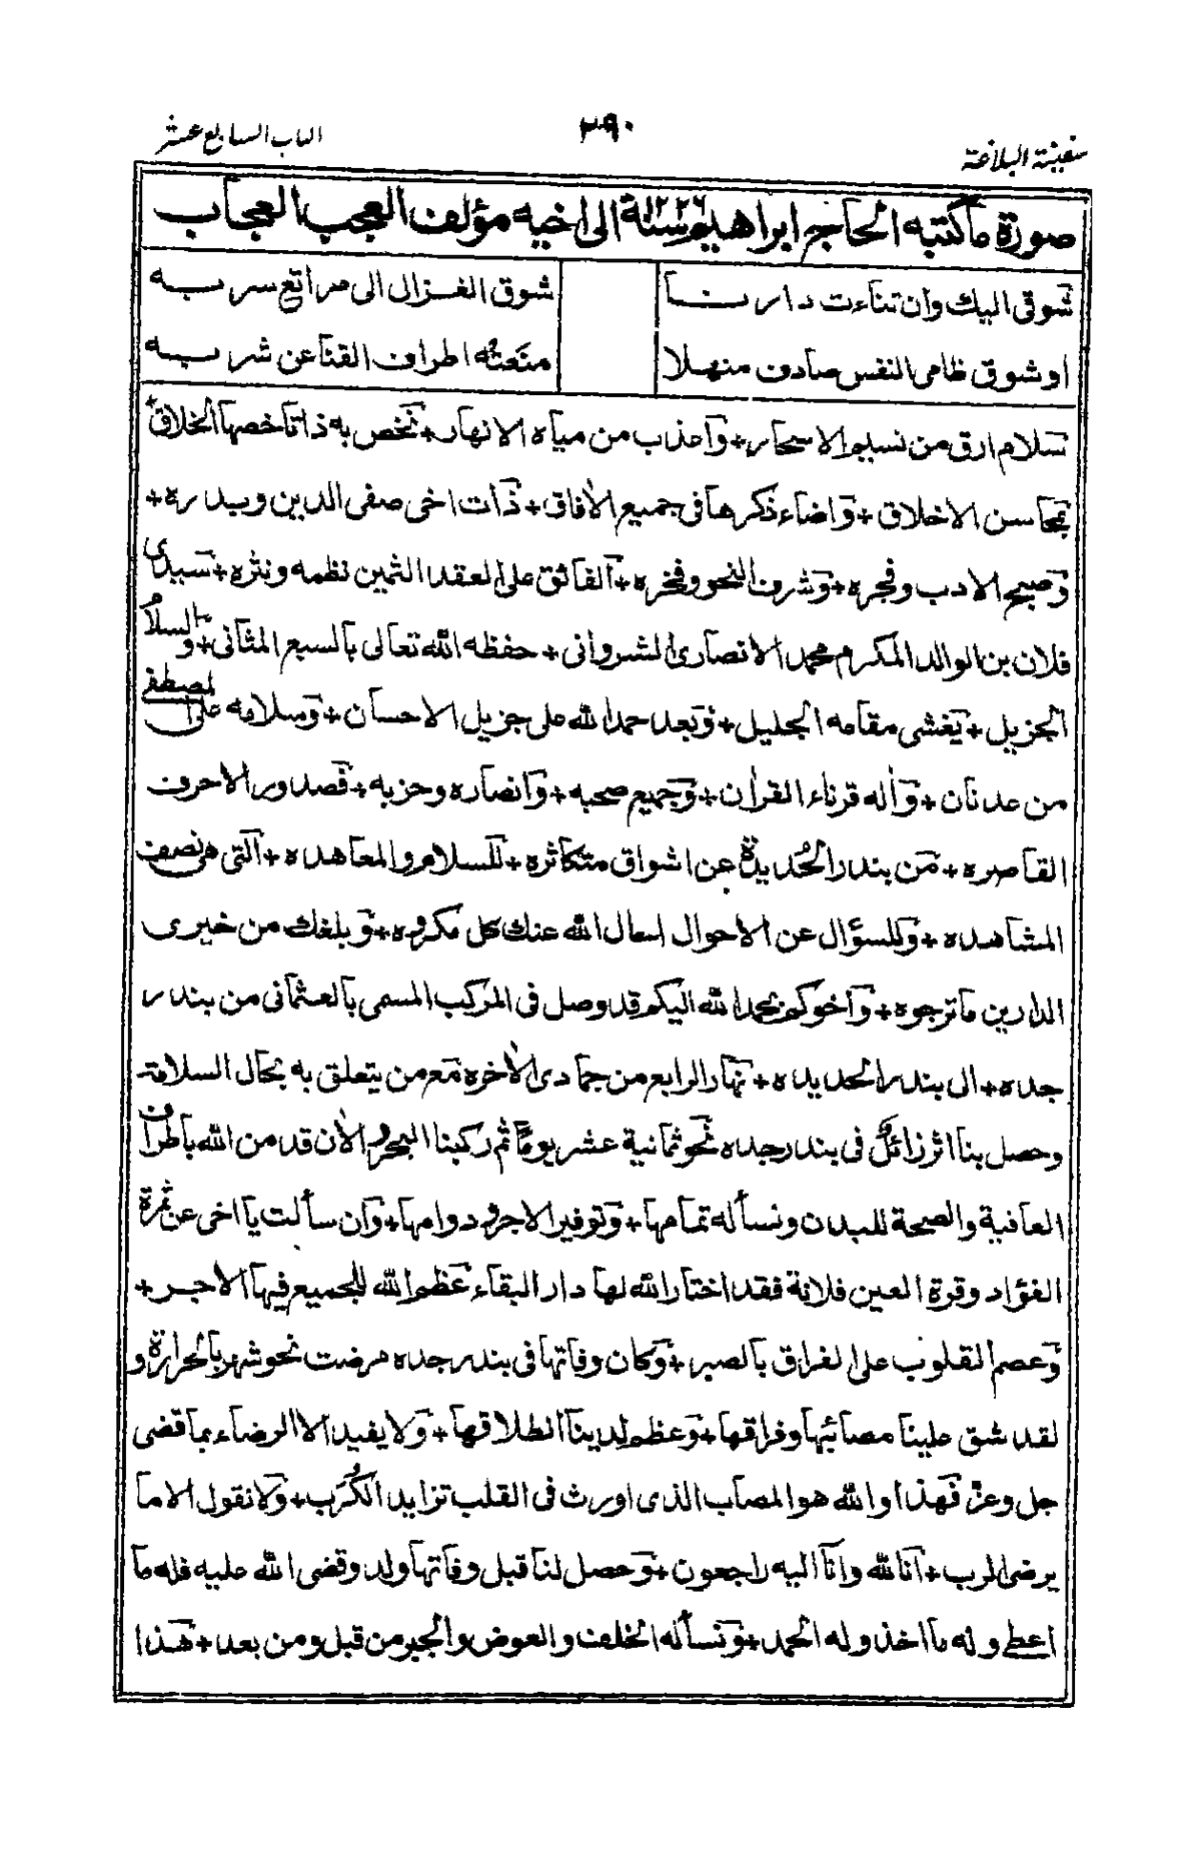 سفينة البلاغة ٣٩٠ الباب السابع عشر
صورة ماكتبه الحاج ابراهيم سنة ١٢٢٦ الى اخيه مؤلف العجب العجاب
شوقى اليك وان تناءت دارنا شوق الغزال الى مراتع سربه
او شوق ظامى النفس صادف منهلا منعته اطراف القنا عن شربه
سلام ارق من نسيم الاسحار + واعذب من مياه الانهار + نخص به ذاتا خصها الخلاق +
بمحاسن الاخلاق + واضاء ذكرها فى جميع الآفاق + ذات اخى صفى الدين وبدره +
وصبح الادب وفجره + وشرف النحو وفخره + الفائق على العقد الثمين نظمه ونثره + سيدى
فلان بن الوالد المكرم محمد الانصارى الشروانى + حفظه الله تعالى بالسبع المثانى + والسلام
الجزيل + يغشى مقامه الجليل + وبعد حمد الله على جزيل الاحسان + وسلامه على المصطفى
من عدنان + وآله قرناء القرآن + وجميع صحبه + وانصاره وحزبه + فصدور الاحرف
القاصره + من بندر الحُديدة عن اشواق متكاثره + للسلام والمعاهده + التى هى نصف
المشاهده + وللسؤال عن الاحوال امال الله عنك كل مكروه + وبلغك من خيرى
الدارين ماترجوه + واخوكم بحمد الله اليكم قد وصل فى المركب المسمى بالعثمانى من بندر
جده + الى بندر الحديده + نهار الرابع من جمادى الآخره مع من يتعلق به بحال السلامة
وحصل بنا اثر زائل فى بندر جده نحو ثمانية عشر يوما ثم ركبنا البحر والآن قد من الله باطراف
العافية والصحة للبدن ونسأله تمامها + وتوفير الاجر ودوامها + وان سألت يا اخى عن ثمرة
الفؤاد وقرة العين فلانة فقد اختار الله لها دار البقاء عظم الله للجميع فيها الاجر +
وعصم القلوب على الفراق بالصبر + وكان وفاتها فى بندر جده مرضت نحو شهر بالحرارة و
لقد شق علينا مصابها وفراقها + وعظم لدينا انطلاقها + ولا يفيد الا الرضاء بما قضى
جل وعز فهذا والله هو المصاب الذى اورث فى القلب تزايد الكُرَب + ولا نقول الا ما
يرضى الرب + انا لله وانا اليه راجعون + وحصل لنا قبل وفاتها ولد وقضى الله عليه فله ما
اعطى وله ما اخذ وله الحمد + ونسأله الخلف والعوض والجبر من قبل ومن بعد + هذا